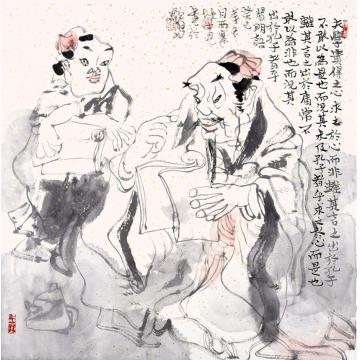 夫學貴得之心求之於心而非雖其言之出於孔子
不敢以為是也而況其未及孔子者乎求心而是也
雖其言之出於庸常不
敢以為非也而況其
出於孔子者乎
陽明語
癸巳